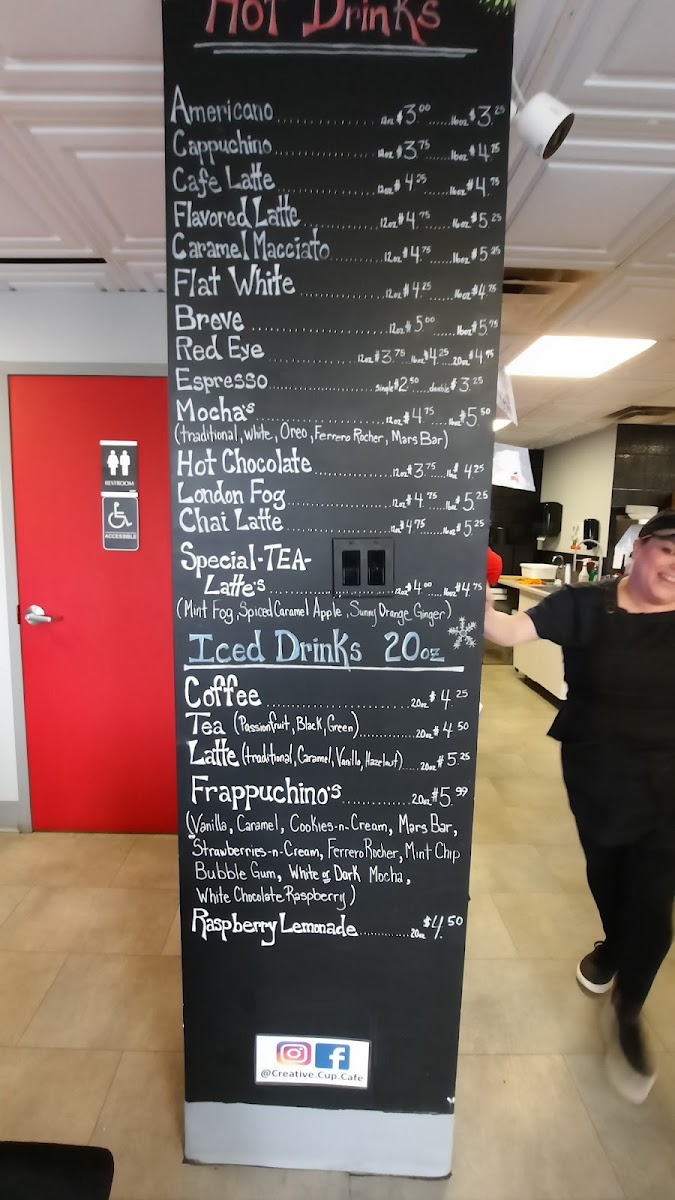 Hot Drinks
Americano 12oz $3.00 16oz $3.25
Cappuchino 12oz $3.75 16oz $4.75
Cafe Latte 12oz $4.25 16oz $4.75
Flavored Latte 12oz $4.75 16oz $5.25
Caramel Macciato 12oz $4.75 16oz $5.25
Flat White 12oz $4.25 16oz $4.75
Breve 12oz $5.00 16oz $5.75
Red Eye 12oz $3.75 16oz $4.25 20oz $4.75
Espresso single $2.50 double $3.25
Mocha's 12oz $4.75 16oz $5.50
(traditional, white, Oreo, Ferrero Rocher, Mars Bar)
Hot Chocolate 12oz $3.75 16oz $4.25
London Fog 12oz $4.75 16oz $5.25
Chai Latte 12oz $4.75 16oz $5.25
Special-TEA-
Latte's 12oz $4.00 16oz $4.75
(Mint Fog, Spiced Caramel Apple, Sunny Orange Ginger)
Iced Drinks 20oz
Coffee 20oz $4.25
Tea (Passionfruit, Black, Green) 20oz $4.50
Latte (traditional, Caramel, Vanilla, Hazelnut) 20oz $5.25
Frappuchino's 20oz $5.99
(Vanilla, Caramel, Cookies-n-Cream, Mars Bar,
Strawberries-n-Cream, Ferrero Rocher, Mint Chip
Bubble Gum, White or Dark Mocha,
White Chocolate Raspberry)
Raspberry Lemonade 20oz $4.50
@Creative.Cup.Cafe
RESTROOM
ACCESSIBLE